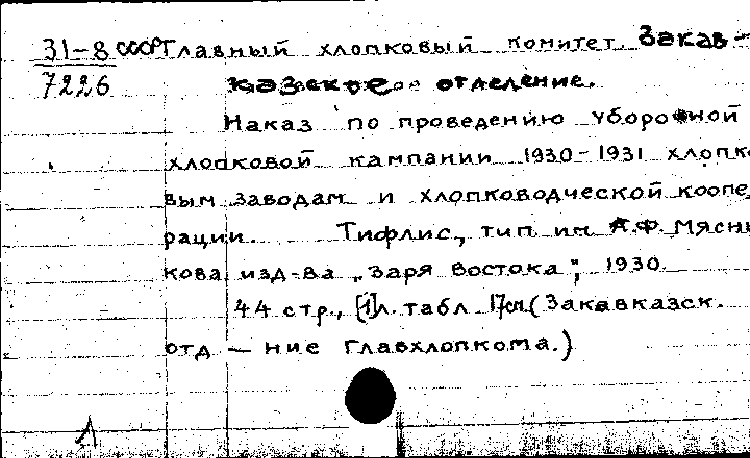 31-8 СССР Главный хлопковый комитет. Закав-
7226 казское отделение.
Наказ по проведению уборочной
хлопковой кампании 1930-1931 хлопко
вым заводам и хлопководческой коопе
рации. Тифлис, тип им. А.Ф. Мясни
кова изд-ва „Заря Востока", 1930.
44 стр., [1]л. табл. 17см. (Закавказск.
отд — ние Главхлопкома.)
Л